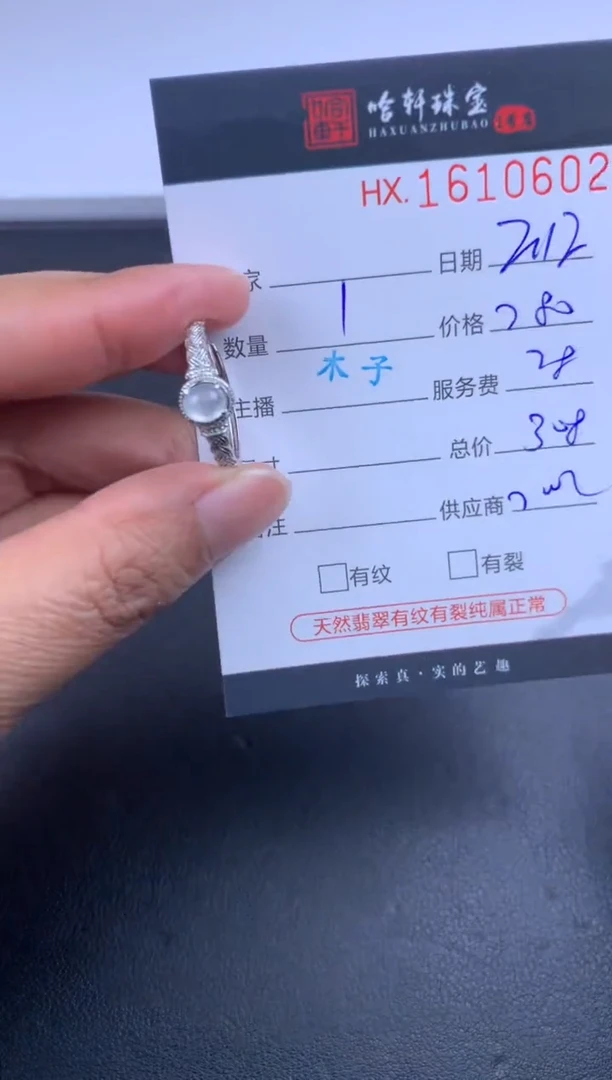 哈轩珠宝
HAXUANZHUBAO
HX.1610602
家 日期
数量 1 价格 280
木子
主播 服务费 28
寸 总价 308
注 供应商
有纹 有裂
天然翡翠有纹有裂纯属正常
探索真·实的艺趣